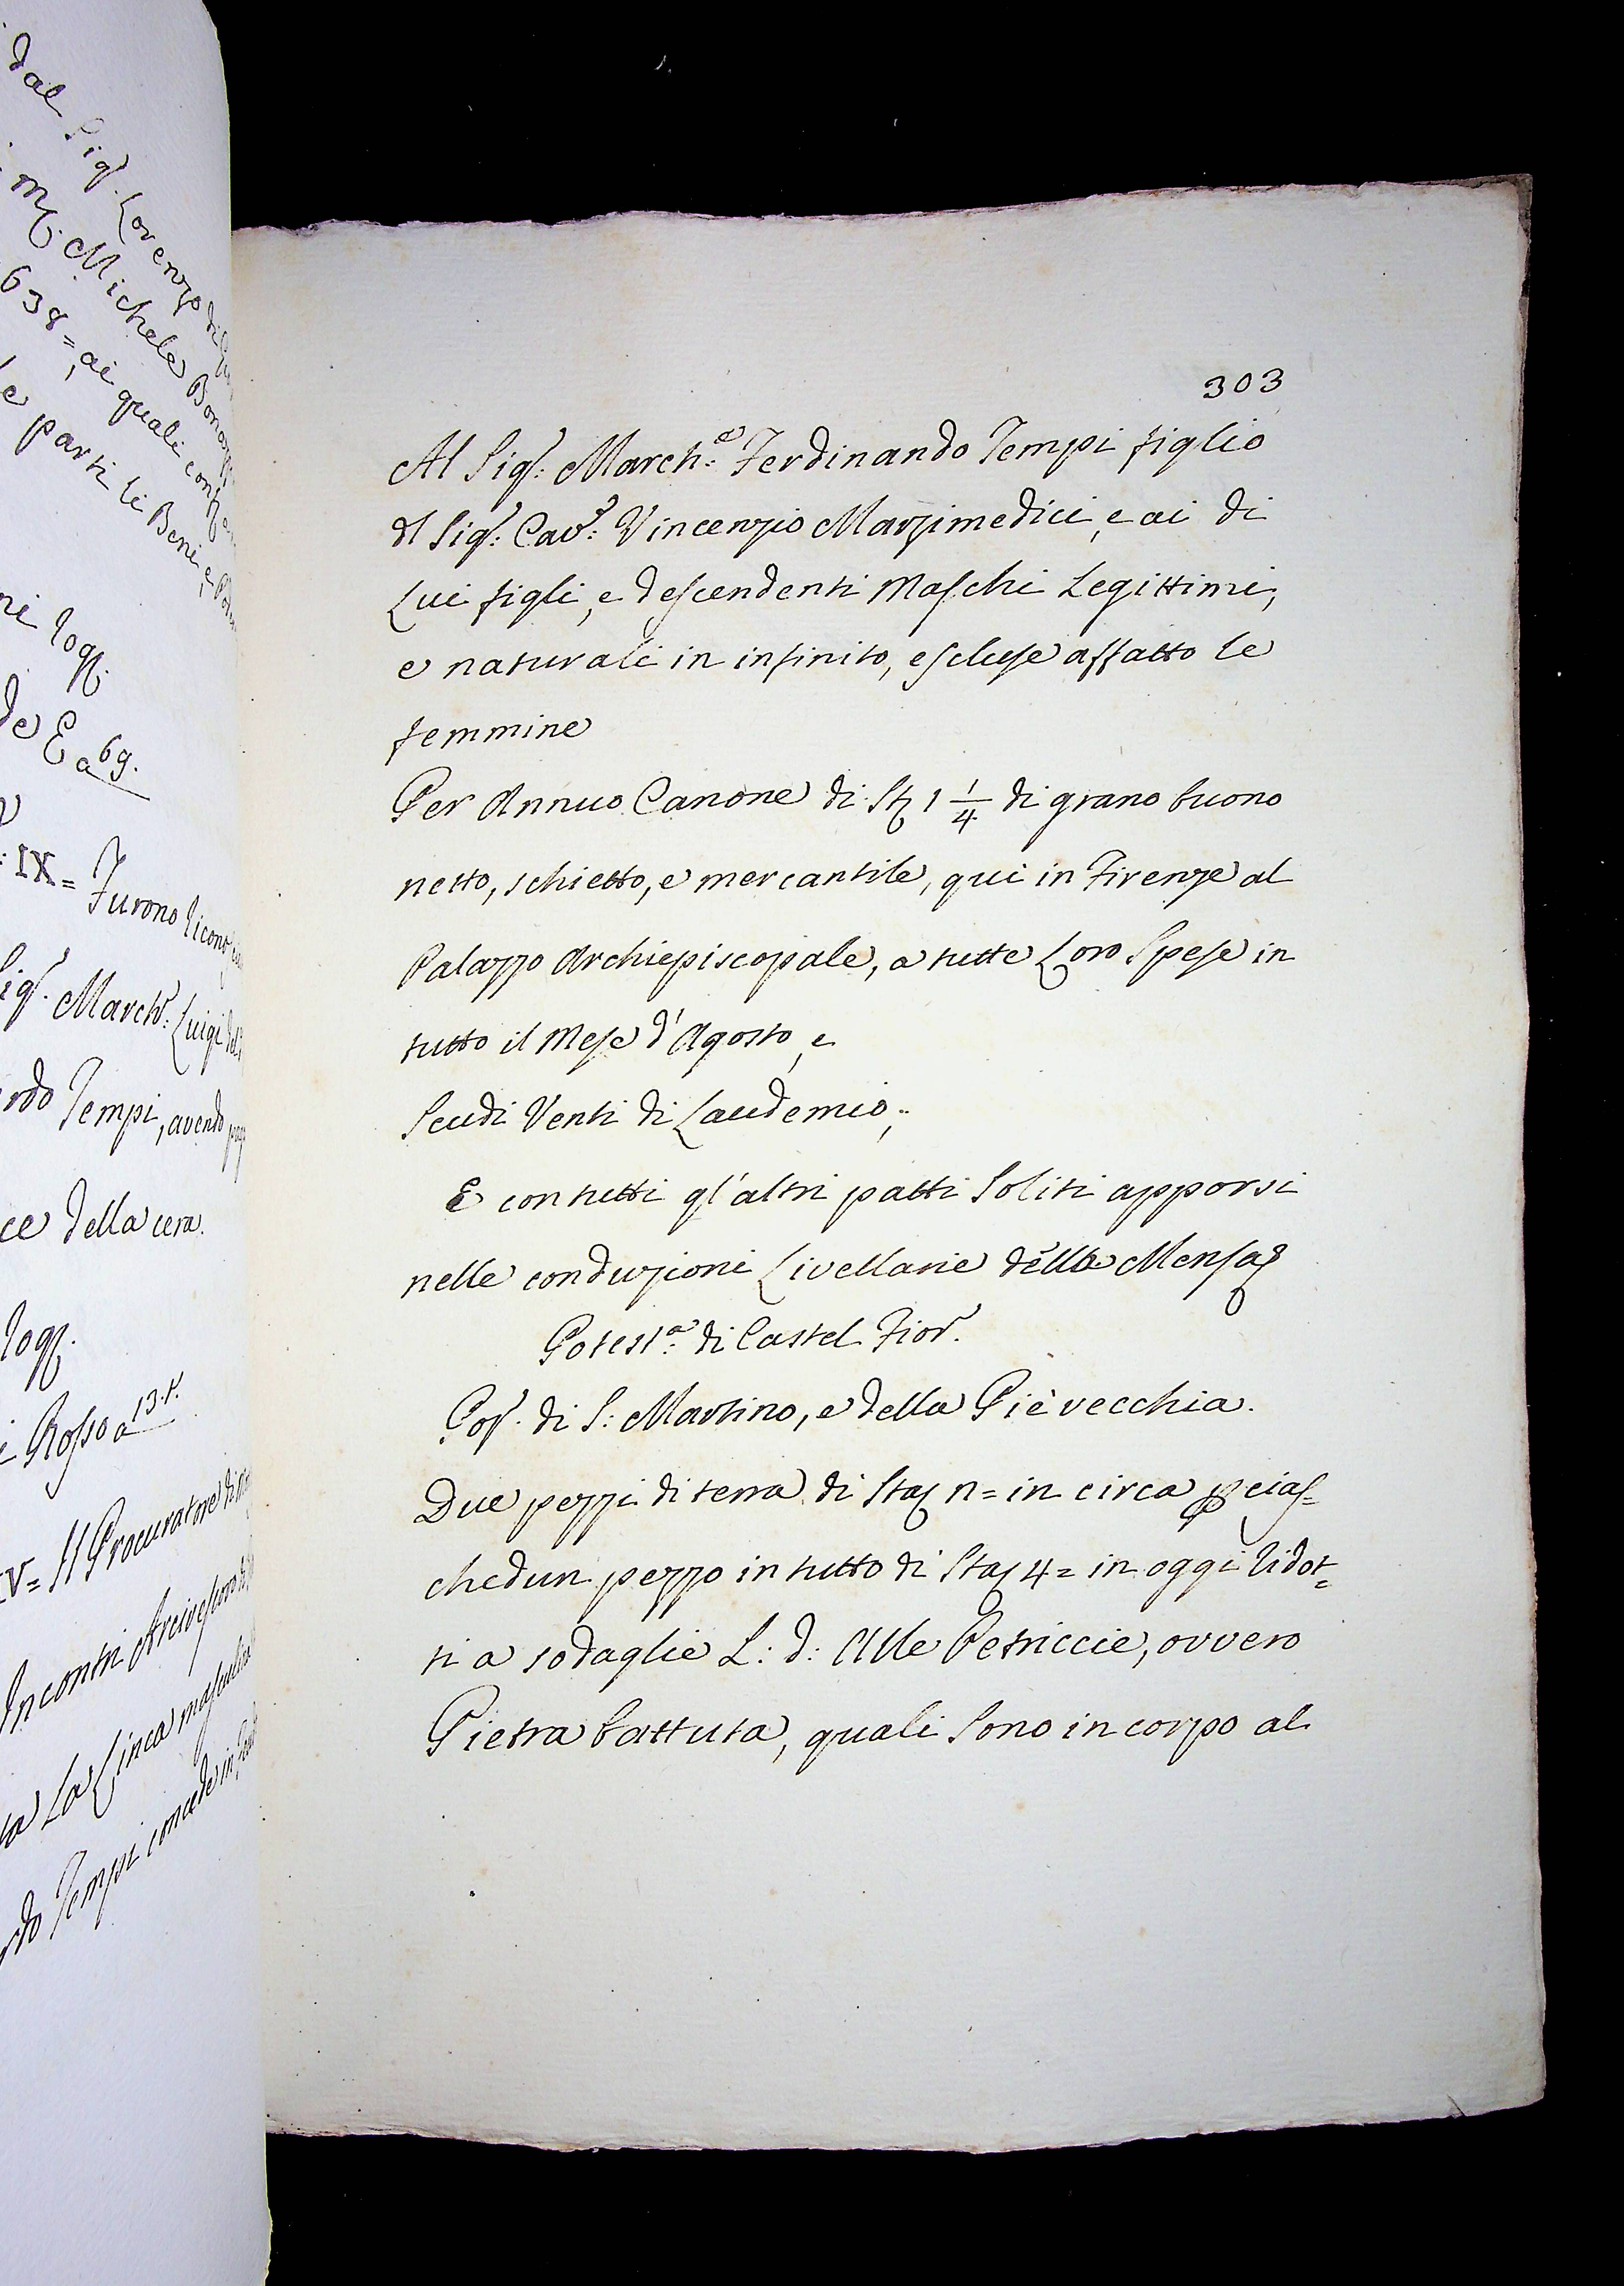 dal Sig.r Lorenzo
m.s Michele
638=, ai quali
e parti li Beni, e
ni
de E a 69.
: IX = Furono
Sig.r March.e Luigi
rdo Tempi, avendo
ce della cera.
Rosso a 13. t.
V= Il Procuratore
Incontri Arcivescovo
ta La Linea
rdo Tempi concede in
303
Al Sig.r: March:e Ferdinando Tempi figlio
dl Sig.r: Cav.r: Vincenzio Marzimedici, e ai di
Lui figli, e descendenti Maschi Legittimi,
e naturali in infinito, escluse affatto le
femmine
Per Annuo Canone di St. 1 1/4 di grano buono
netto, schietto, e mercantile, qui in Firenze al
Palazzo Archiepiscopale, a tutte Loro Spese in
tutto il Mese d'Agosto, e
Scudi Venti di Laudemio;
E con tutti gl'altri patti Soliti apporsi
nelle conduzioni Livellarie della Mensa
Potest:a di Castel Fior.o
Pop. di S: Martino, e della Piè vecchia.
Due pezzi di terra di Sta n= in circa p cias=
chedun pezzo in tutto di Sta 4= in oggi ridot=
ti a sodaglie L: d: Alle Petriccie, ovvero
Pietra battuta, quali Sono in corpo al